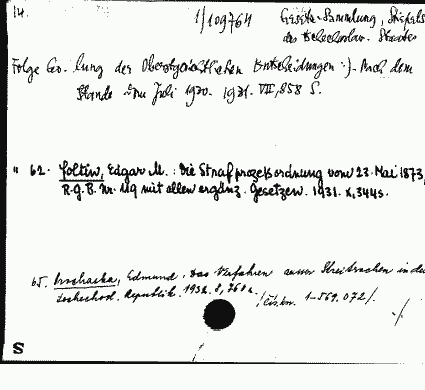 14.
1/109764 Gesetz-Sammlung,
des Tschechoslow. Staates
Folge 60. lung der Oberstgerichtlichen Entscheidungen :)- Nach dem
Stande vom Juli 1930. 1931. VII, 858 S.
" 62. Foltin, Edgar M.: Die Strafprozeßordnung vom 23. Mai 1873,
R.G.B. Nr. 119 mit allen ergänz. Gesetzen. 1931. X, 344 S.
65. Prochaska, Edmund. Das Verfahren Streitsachen in der
tschechosl. Republik. 1932. 1-569.072/.
S